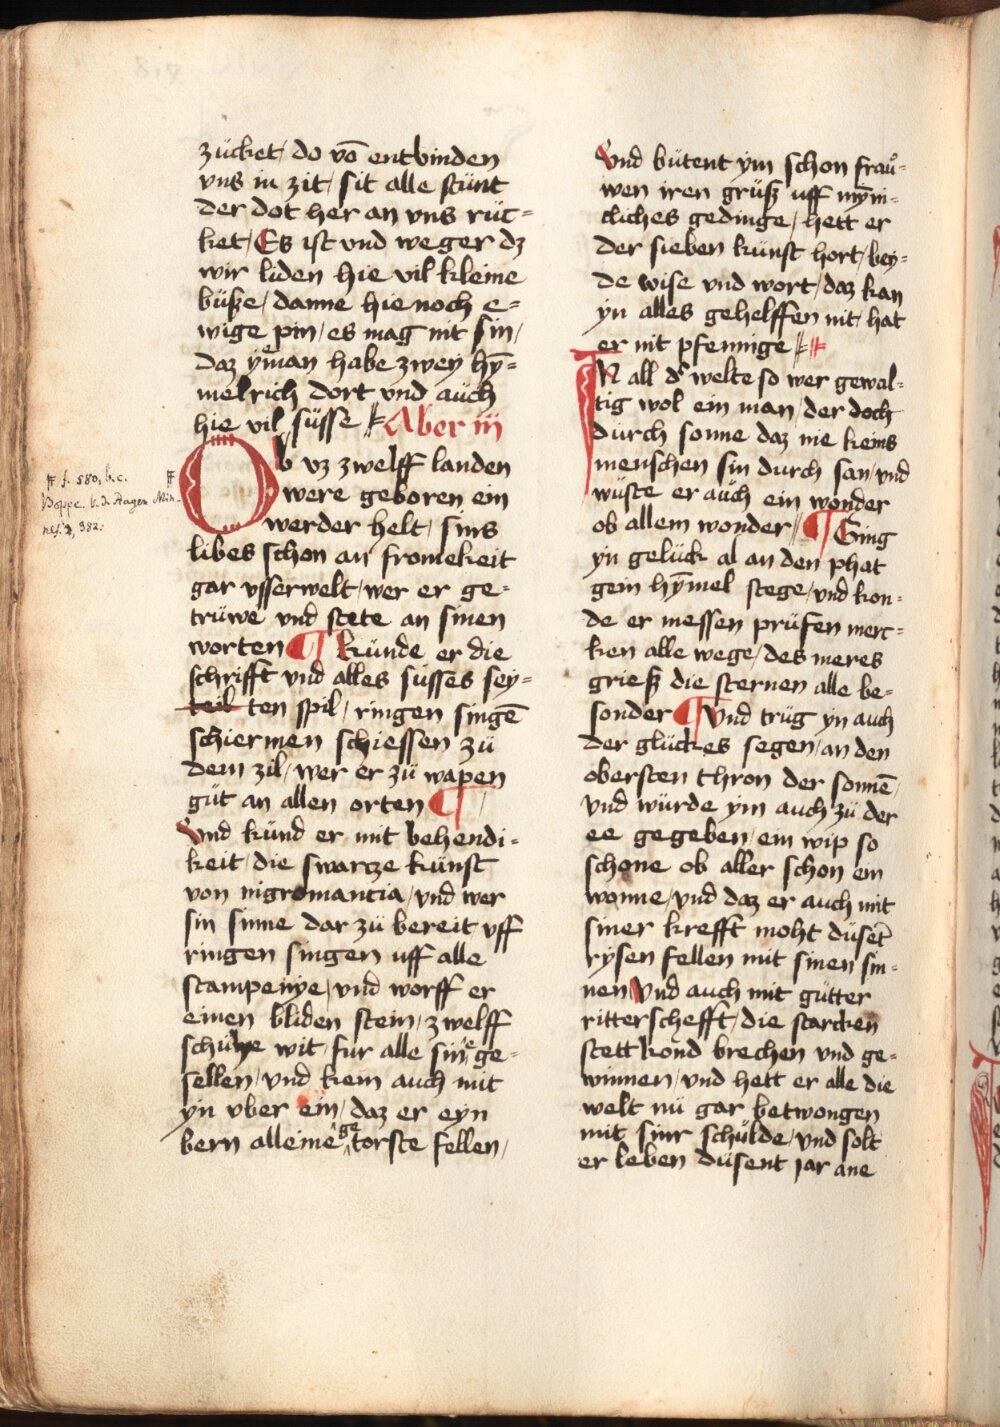 zücket / do võ entbinden
vns in zit / sit alle stünt
der dot her an vns rüc=
ket / Es ist vnd weger dz
wir liden hie vil kleine
büße / danne hie noch e=
wige pin / es mag nit sin /
daz yeman habe zwey hȳ=
melrich dort vnd auch
hie vil süsse Aber iij
Ob vz zwelff landen
were geboren ein
werder helt / sins
libes schon an fromekeit
gar vsserwelt / wer er ge=
trüwe vnd stete an sinen
worten ¶ künde er die
schrifft vnd alles süsses sey=
teil ten spil / ringen singē
schiermen schiessen zü
dem zil / wer er zü wapen
güt an allen orten ¶
Vnd künd er mit behendi=
keit / die swartze künst
von nigromantia / vnd wer
sin sinne dar zü bereit vff
ringen singen uff alle
stampenye / vnd worff er
einen bliden stein / zwelff
schuhe wit / fur alle sine ge=
sellen / vnd kem auch mit
yn vber ein / daz er eyn
bern alleine getorste fellen /
ff f. 580, b.c.
Boppe. v. d. Hagen Min-
nes. 2, 382.
Vnd bütent ym schon frau°=
wen iren grüß uff mȳn=
cliches gedinge / hett er
der sieben künst hort / bey=
de wise vnd wort / daz kan
yn alles gehelffen nit / hat
er nit pfennige
IN all d' welte so wer gewal=
tig wol ein man / der doch
dürch sonne daz nie keins
menschen sin durch san / vnd
wüste er auch ein wonder
ob allem wonder // ¶ Ging
yn gelück al an den phat
gein hȳmel stege / vnd kon=
de er messen prüfen merc=
ken alle wege / des meres
grieß die sternen alle be=
sonder ¶ Vnd trüg yn auch
der glückes segen / an den
obersten thron der sonnē /
vnd würde ym auch zü der
ee gegeben / ein wip so
schone ob aller schon ein
wonne / vnd daz er auch mit
siner krefft moht düsēt
rysen fellen mit sinen sin=
nen Vnd auch mit gütter
ritterschefft / die starcken
stett kond brechen vnd ge=
winnen / vnd hett er alle die
welt nü gar betwongen
mit sinr schülde / vnd solt
er leben düsent jar ane